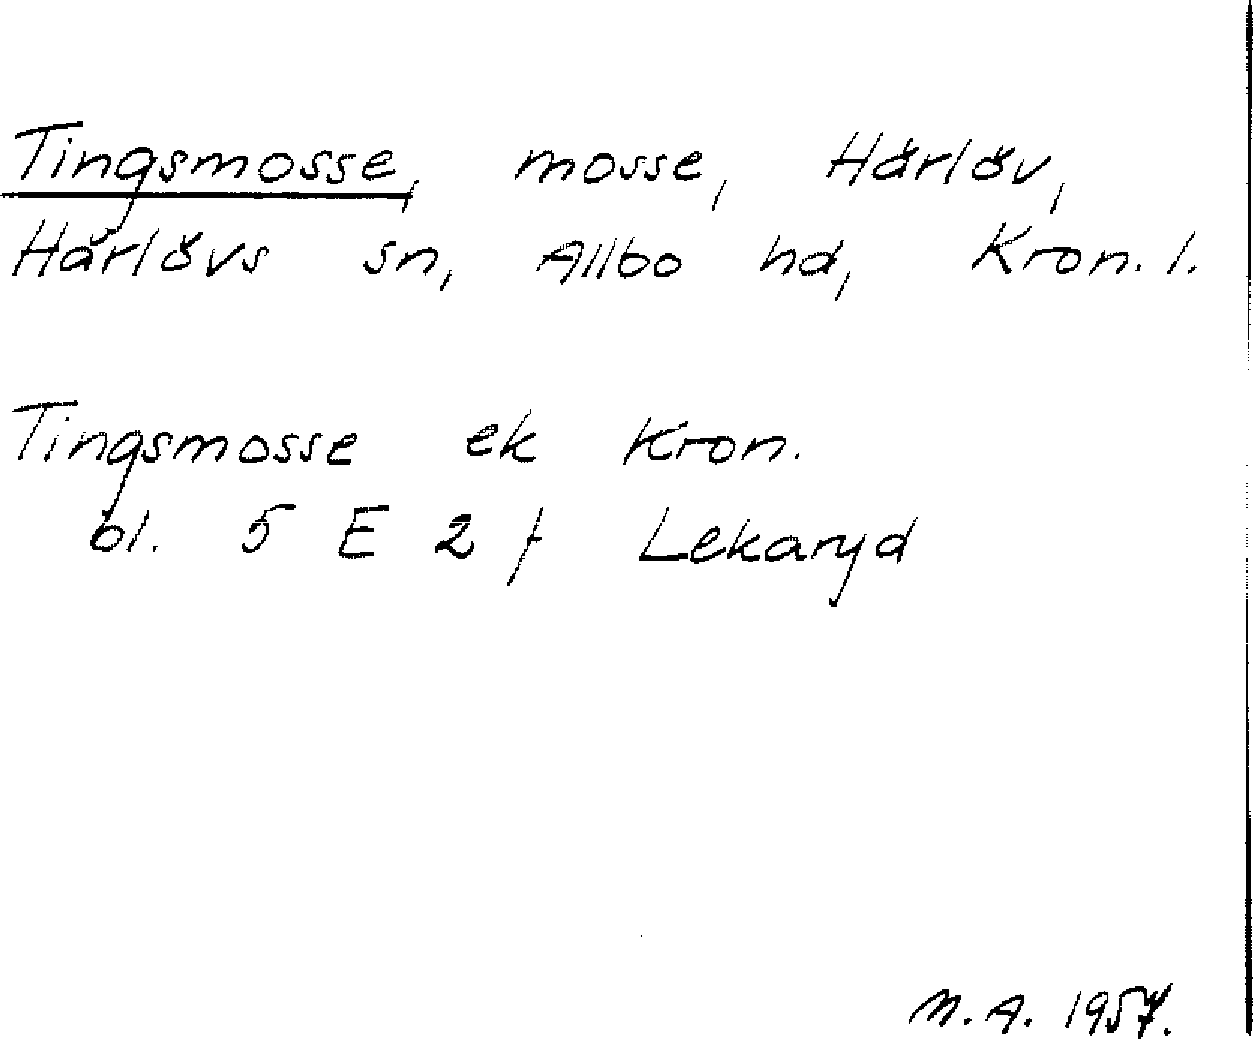 Tingsmosse, mosse, Härlöv,
Härlövs sn, Allbo hd, Kron. l.
Tingsmosse ek Kron.
bl. 5 E 2 f Lekaryd
M. A. 1957.